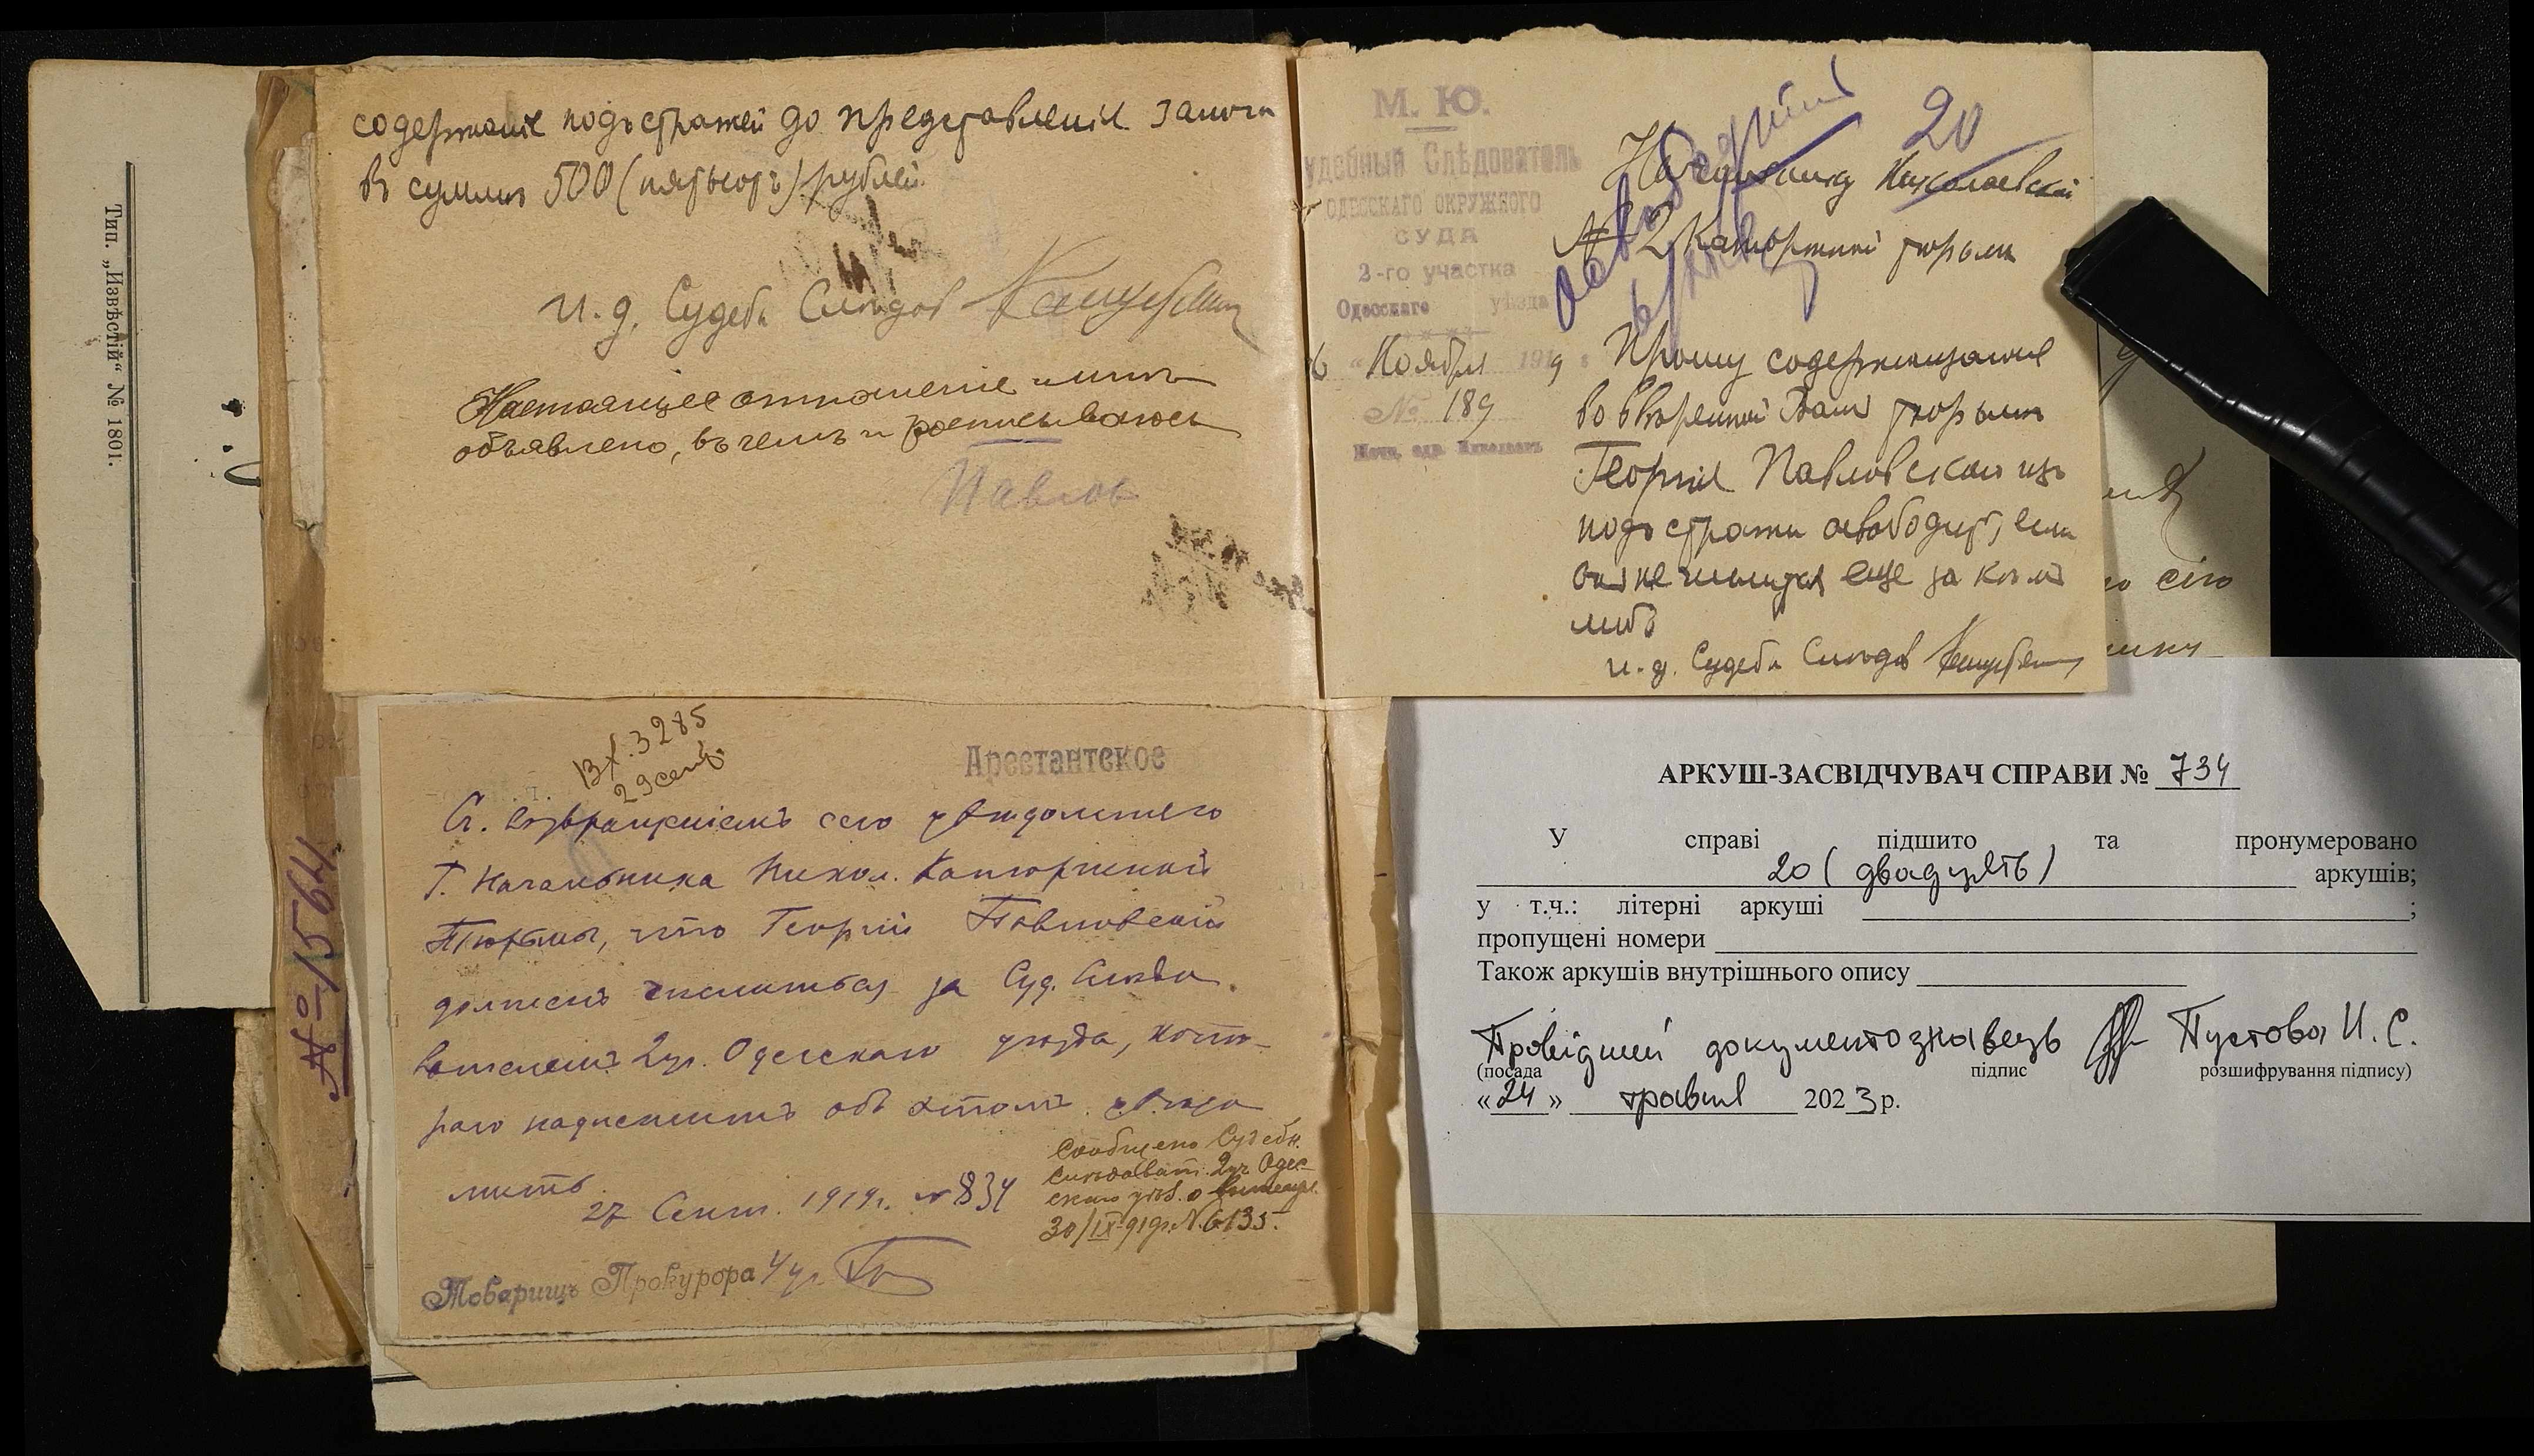 содержаніе подъ стражей до представленія залога
въ суммѣ 500 (пятьсотъ) рублей.
И. д. Судебн Слѣдов
Настоящее отношеніе мнѣ
объявлено, въ чемъ и росписываюсь
Павлов
М. Ю.
удебный Слѣдователь
ОДЕССКАГО ОКРУЖНОГО
СУДА
2-го участка
Одесскаго уѣзда
6 " Ноября 1919 г
№ 189
20
Начальнику Николаевской
№ 2 Каторжной тюрьмы
Прошу содержащагося
во ввѣренной Вамъ тюрьмѣ
Георгія Павловскаго изъ
подъ стражи освободить, если
онъ не числится еще за кѣмъ
либо
И. д. Судебн Слѣдов
Тип. „Извѣстій" № 1801.
№ 1564
Вх. 3285
29 сент.
Арестантское
Съ возвращеніемъ сего увѣдомляю
Г. Начальника Никол. Каторжной
Тюрьмы, что Георгій Павловскій
долженъ числиться за Суд. Слѣдо
вателемъ 2 уч. Одесскаго уѣзда, кото-
раго надлежитъ объ этомъ увѣдо
мить
27 Сент. 1919 г. № 834
Сообщено Судебн.
Слѣдоват. 2 уч Одес-
скаго уѣзд. о
30/IX 919 г. № 6135.
Товарищъ Прокурора 4 уч
АРКУШ-ЗАСВІДЧУВАЧ СПРАВИ № 734
У справі підшито та пронумеровано
20 (двадцять) аркушів;
у т.ч.: літерні аркуші ;
пропущені номери
Також аркушів внутрішнього опису
Провідний документознавець Пустова И. С.
(посада підпис розшифрування підпису)
«24» травня 2023 р.